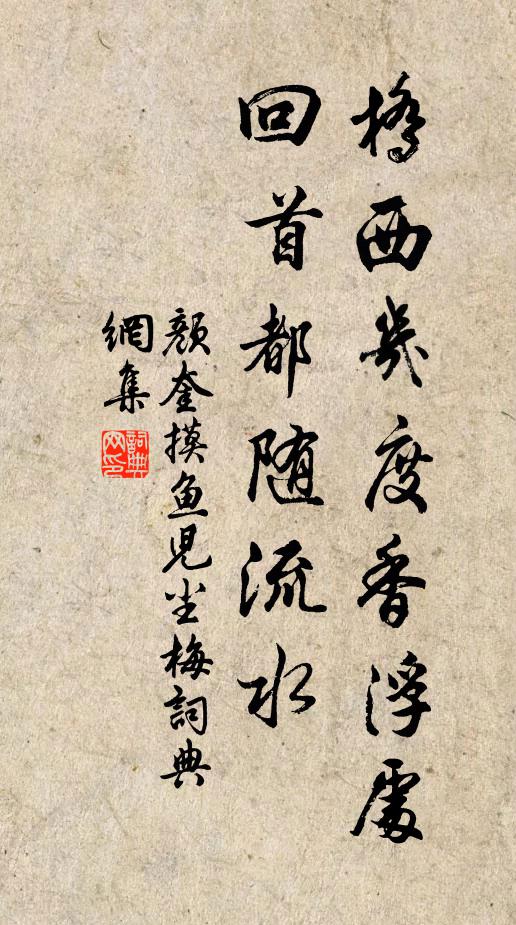 橋西幾度香浮處
回首都随流水
顏奎摸魚兒坐梅詞典
網集
詞典
网印